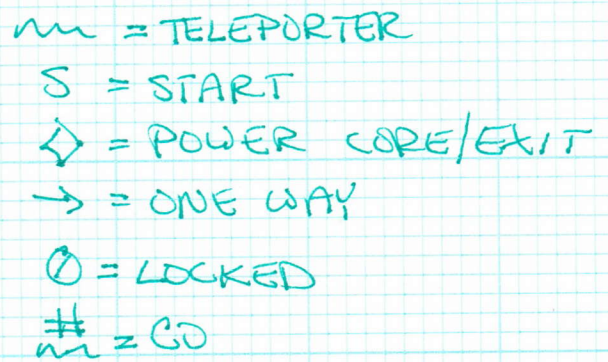 = TELEPORTER
S = START
◇ = POWER CORE/EXIT
→ = ONE WAY
= LOCKED
# = GO